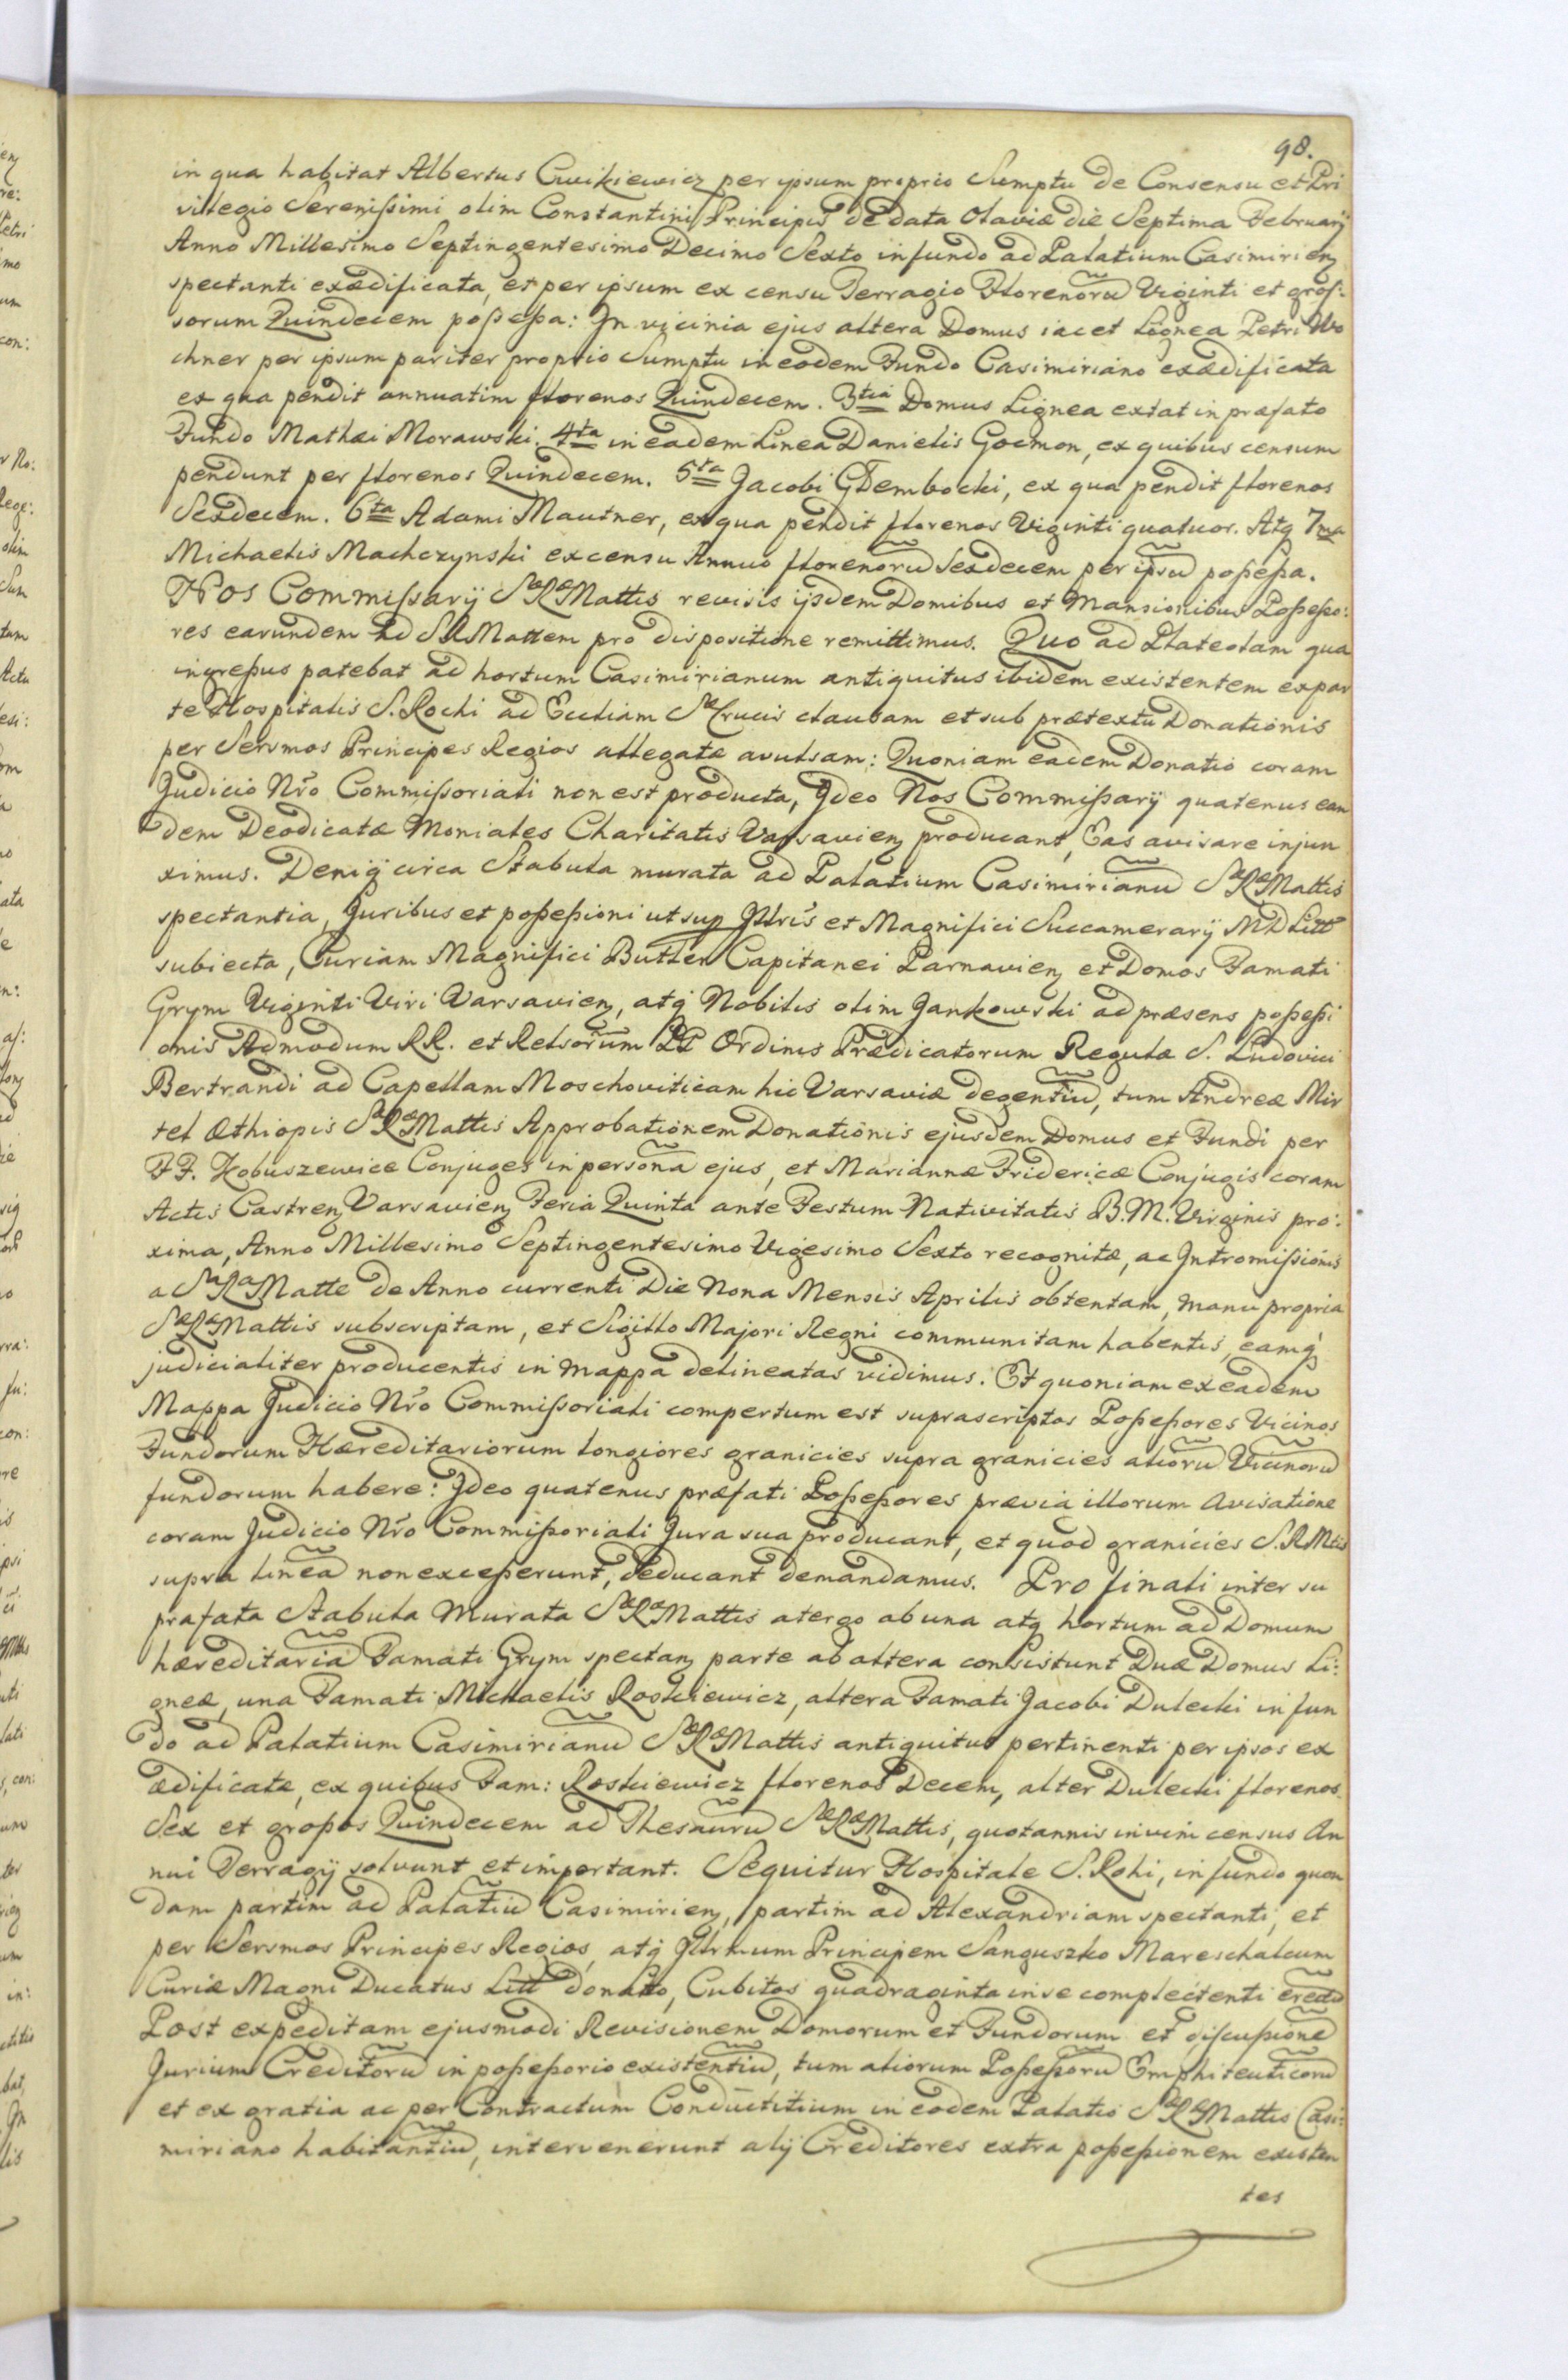 98.
in qua habitat Albertus Cwikiewicz per ipsum proprio Sumptu de Consensu et Pri
villegio Serenissimi olim Constantini Principis de data Olaviæ die Septima February
Anno Millesimo Septingentesimo Decimo Sexto in fundo ad Palatium Casimirien
spectanti exædificata, et per ipsum ex censu Terragio Florenorũ Viginti et gros:
sorum Quindecem possessa: In vicinia ejus altera Domus iacet Lignea Petri Wo
chner per ipsum pariter proprio Sumptu in eodem Fundo Casimiriano exædificata
ex qua pendit annuatim florenos Quindecem. 3tia Domus Lignea extat in præfato
Fundo Mathæi Morawski. 4ta in eadem Linea Danielis Gocmon, ex quibus censum
pendunt per florenos Quindecem. 5ta Jacobi GDembocki, ex qua pendit florenos
Sexdecem. 6ta Adami Mautner, ex qua pendit florenos Viginti quatuor. Atq 7ma
Michaelis Machczynski ex censu Annuo florenorũ Sexdecem per ipsũ possessa.
Nos Commissarij SæRæMattis revisis ijsdem Domibus et Mansionibus Possesso:
res earundem ad SRMattem pro dispositione remittimus. Quo ad Plateolam qua
ingressus patebat ad hortum Casimirianum antiquitus ibidem existentem ex par
te Hospitalis S. Rochi ad Eccliam Sæ Crucis clausam et sub prætextu Donationis
per Sersmos Principes Regios allegatæ avulsam: Quoniam eadem Donatio coram
Judicio Nr̃o Commissoriali non est producta, Ideo Nos Commissarij quatenus ean
dem Deodicatæ Moniales Charitatis Varsavien producant, Eas avisare injun
ximus. Deniq circa Stabula murata ad Palatium Casimirianũ SæRæMattis
spectantia, Juribus et possessioni ut sup Illris et Magnifici Succamerarij MD Litt
subiecta, Curiam Magnifici Butler Capitanei Parnavien et Domos Famati
Grym Viginti Viri Varsavien, atq Nobilis olim Jankowski ad præsens possessi
onis Admodum RR. et Relsorum PP Ordinis Prædicatorum Regulæ S. Ludovici
Bertrandi ad Capellam Moschoviticam hic Varsaviæ degentiũ, tum Andreæ Mir
tel Æthiopis SæRæMattis Approbationem Donationis ejusdem Domus et Fundi per
FF. Kobuszewice Conjuges in persona ejus, et Mariannæ Fridericæ Conjugis coram
Actis Castren Varsavien Feria Quinta ante Festum Nativitatis B. M. Virginis pro:
xima, Anno Millesimo Septingentesimo Vigesimo Sexto recognitæ, ac Intromissionis
a SaRaMatte de Anno currenti Die Nona Mensis Aprilis obtentam, manu propria
SæRæMattis subscriptam, et Sigillo Majori Regni communitam habentis, eamq
judicialiter producentis in mappa delineatas vidimus. Et quoniam ex eadem
Mappa Judicio Nr̃o Commissoriali compertum est suprascriptos Possessores Vicinos
Fundorum Hæreditariorum longiores granicies supra granicies aliorũ Vicinorũ
fundorum habere: Ideo quatenus præfati Possessores prævia illorum Avisatione
coram Judicio Nr̃o Commissoriali Jura sua producant, et quod granicies S.RMtis
supra lineã non excesserunt, deducant demandamus. Pro finali inter su
prafata Stabula Murata SæRæMattis a tergo ab una atq hortum ad Domum
hæreditariã Famati Grym spectan parte ab altera consistunt Duæ Domus Li:
gneæ, una Famati Michaelis Roskiewicz, altera Famati Jacobi Dulecki in fun
do ad Palatium Casimirianũ SæRæMattis antiquitus pertinenti per ipsos ex
ædificatæ, ex quibus Fam: Roskiewicz florenos Decem, alter Dulecki florenos
Sex et grossos Quindecem ad Thesaurũ SæRæMattis, quotannis in vim census An
nui Terragij solvunt et important. Sequitur Hospitale S. Rohi, in fundo quon
dam partim ad Palatiũ Casimirien, partim ad Alexandriam spectanti, et
per Sersmos Principes Regios, atq Illrmum Principem Sanguszko Mareschalcum
Curiæ Magni Ducatus Litt donato, Cubitos quadraginta in se complectenti erectũ
Post expeditam ejusmodi Revisionem Domorum et Fundorum et discussionẽ
Jurium Creditorũ in possessorio existentiũ, tum aliorum Possessorũ Emphiteuticorũ
et ex gratia ac per Contractum Conductitium in eodem Palatio SæRæMattis Casi:
miriano habitantiũ, intervenerunt alij Creditores extra possessionem existen
tes